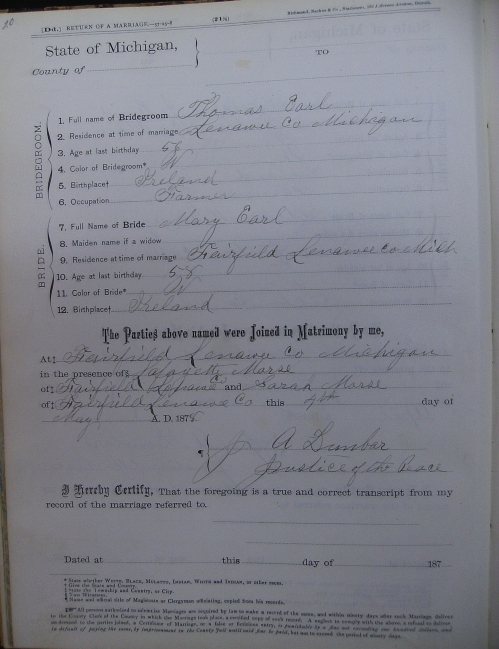 20
(Dd.) RETURN OF A MARRIAGE.
(218)
State of Michigan,
TO
County of
BRIDEGROOM.
1. Full name of Bridegroom Thomas Earl
2. Residence at time of marriage Lenawee Co Michigan
3. Age at last birthday 58
4. Color of Bridegroom* W
5. Birthplace† Ireland
6. Occupation Farmer
BRIDE.
7. Full Name of Bride Mary Earl
8. Maiden name if a widow
9. Residence at time of marriage Fairfield Lenawee co Mich
10. Age at last birthday 58
11. Color of Bride* W
12. Birthplace† Ireland
The Parties above named were Joined in Matrimony by me,
At‡ Fairfield Lenawee Co Michigan
in the presence of§ Lafayette Morse
of‡ Fairfield Lenawee and Sarah Morse
of‡ Fairfield Lenawee Co this 9th day of
May A. D. 1878
¶ J A Dunbar
Justice of the Peace
I Hereby Certify, That the foregoing is a true and correct transcript from my
record of the marriage referred to.
Dated at this day of 187
* State whether WHITE, BLACK, MULATTO, INDIAN, WHITE and INDIAN, or other race.
† Give the State and County.
‡ State the Township and County, or City.
§ Two Witnesses.
¶ Name and official title of Magistrate or Clergyman officiating, copied from his records.
All persons authorized to solemnize Marriages are required by law to make a record of the same, and within ninety days after such Marriage deliver
to the County Clerk of the County in which the Marriage took place, a certified copy of such record. A neglect to comply with the above, a refusal to deliver
on demand to the parties joined, a Certificate of Marriage, or a false or fictitious entry, is punishable by a fine not exceeding one hundred dollars, and
in default of paying the same, by imprisonment in the County Jail until said fine is paid, but not to exceed the period of ninety days.